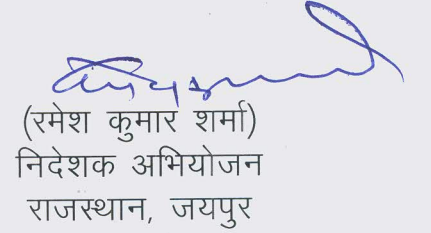 (रमेश कुमार शर्मा)
निदेशक अभियोजन
राजस्थान, जयपुर